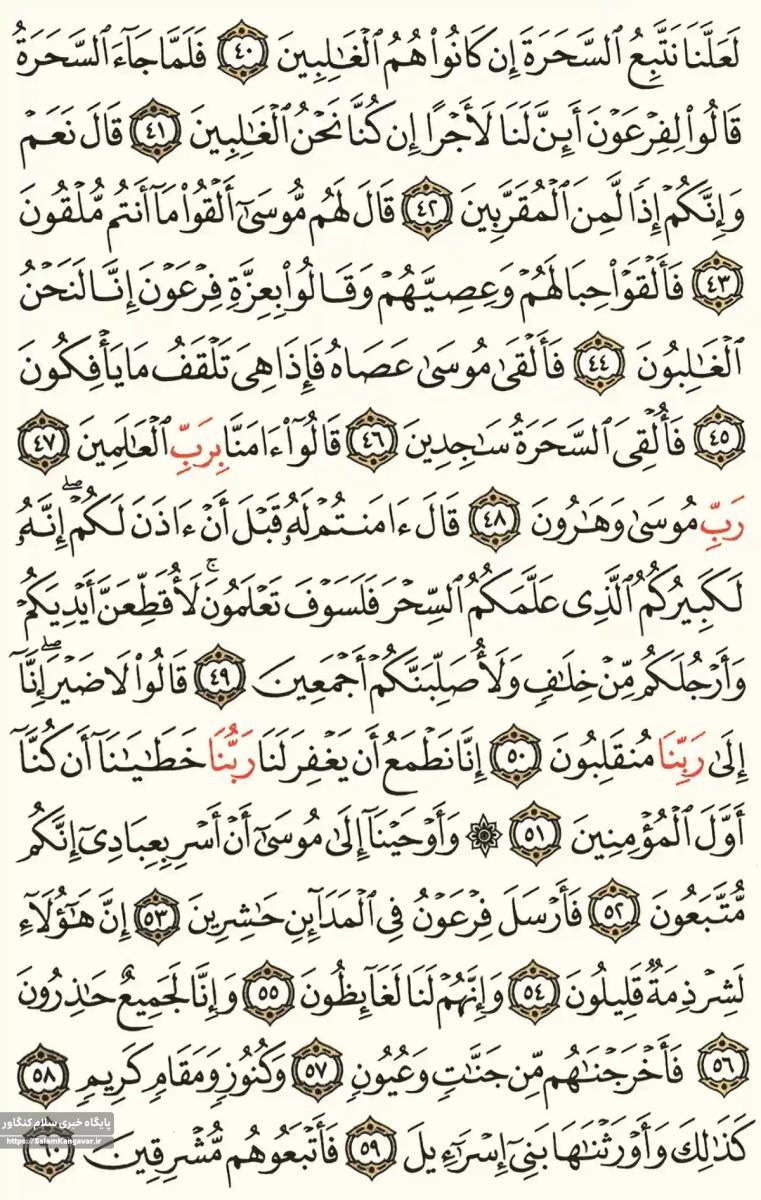 لَعَلَّنَا نَتَّبِعُ ٱلسَّحَرَةَ إِن كَانُوا۟ هُمُ ٱلْغَـٰلِبِينَ ٤٠ فَلَمَّا جَآءَ ٱلسَّحَرَةُ
قَالُوا۟ لِفِرْعَوْنَ أَئِنَّ لَنَا لَأَجْرًا إِن كُنَّا نَحْنُ ٱلْغَـٰلِبِينَ ٤١ قَالَ نَعَمْ
وَإِنَّكُمْ إِذًا لَّمِنَ ٱلْمُقَرَّبِينَ ٤٢ قَالَ لَهُم مُّوسَىٰٓ أَلْقُوا۟ مَآ أَنتُم مُّلْقُونَ
٤٣ فَأَلْقَوْا۟ حِبَالَهُمْ وَعِصِيَّهُمْ وَقَالُوا۟ بِعِزَّةِ فِرْعَوْنَ إِنَّا لَنَحْنُ
ٱلْغَـٰلِبُونَ ٤٤ فَأَلْقَىٰ مُوسَىٰ عَصَاهُ فَإِذَا هِىَ تَلْقَفُ مَا يَأْفِكُونَ
٤٥ فَأُلْقِىَ ٱلسَّحَرَةُ سَـٰجِدِينَ ٤٦ قَالُوٓا۟ ءَامَنَّا بِرَبِّ ٱلْعَـٰلَمِينَ ٤٧
رَبِّ مُوسَىٰ وَهَـٰرُونَ ٤٨ قَالَ ءَامَنتُمْ لَهُۥ قَبْلَ أَنْ ءَاذَنَ لَكُمْ ۖ إِنَّهُۥ
لَكَبِيرُكُمُ ٱلَّذِى عَلَّمَكُمُ ٱلسِّحْرَ فَلَسَوْفَ تَعْلَمُونَ ۚ لَأُقَطِّعَنَّ أَيْدِيَكُمْ
وَأَرْجُلَكُم مِّنْ خِلَـٰفٍ وَلَأُصَلِّبَنَّكُمْ أَجْمَعِينَ ٤٩ قَالُوا۟ لَا ضَيْرَ ۖ إِنَّآ
إِلَىٰ رَبِّنَا مُنقَلِبُونَ ٥٠ إِنَّا نَطْمَعُ أَن يَغْفِرَ لَنَا رَبُّنَا خَطَـٰيَـٰنَآ أَن كُنَّآ
أَوَّلَ ٱلْمُؤْمِنِينَ ٥١ ۞ وَأَوْحَيْنَآ إِلَىٰ مُوسَىٰٓ أَنْ أَسْرِ بِعِبَادِىٓ إِنَّكُم
مُّتَّبَعُونَ ٥٢ فَأَرْسَلَ فِرْعَوْنُ فِى ٱلْمَدَآئِنِ حَـٰشِرِينَ ٥٣ إِنَّ هَـٰٓؤُلَآءِ
لَشِرْذِمَةٌ قَلِيلُونَ ٥٤ وَإِنَّهُمْ لَنَا لَغَآئِظُونَ ٥٥ وَإِنَّا لَجَمِيعٌ حَـٰذِرُونَ
٥٦ فَأَخْرَجْنَـٰهُم مِّن جَنَّـٰتٍ وَعُيُونٍ ٥٧ وَكُنُوزٍ وَمَقَامٍ كَرِيمٍ ٥٨
كَذَٰلِكَ وَأَوْرَثْنَـٰهَا بَنِىٓ إِسْرَٰٓءِيلَ ٥٩ فَأَتْبَعُوهُم مُّشْرِقِينَ ٦٠
پایگاه خبری سلام کنگاور
https://SalamKangavar.ir